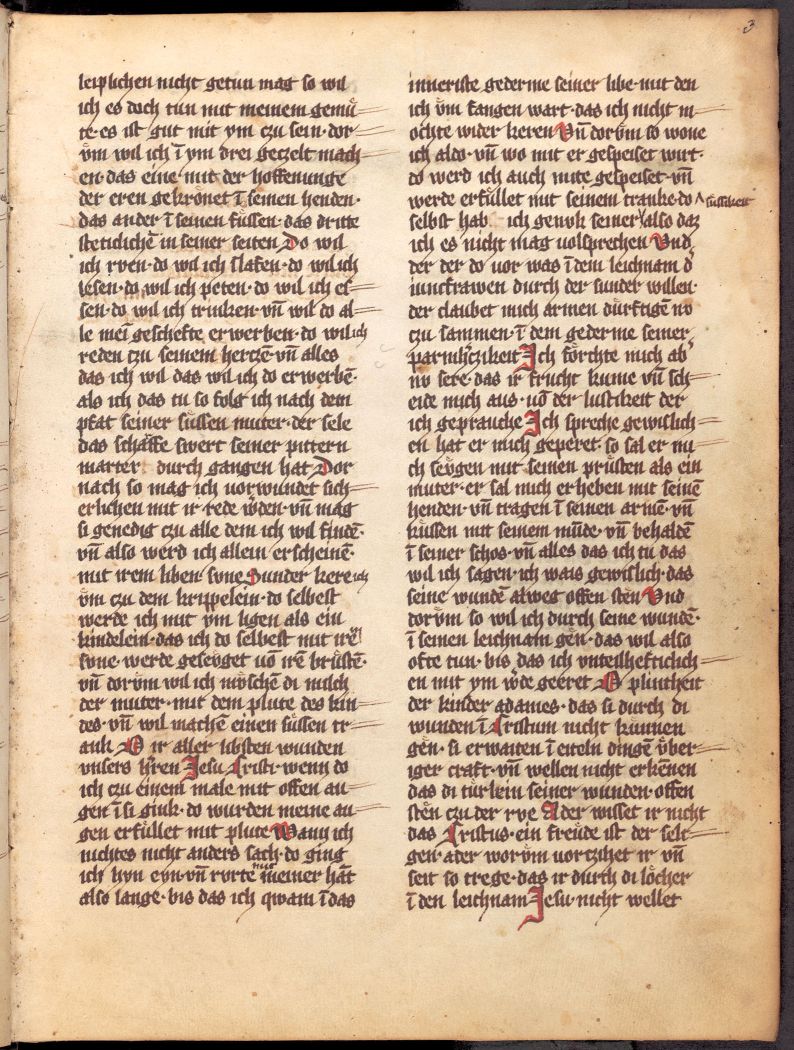 3
leiplichen nicht getun mag so wil
ich es doch tun mit meinem gemů=
te· es ist gut mit ym czu sein· dor=
vm wil ich ī ym drei geczelt mach=
en· das eine mit der hoffenunge
der eren gekrönet ī seinen henden·
das ander ī seinen füssen· das dritte
steticlichē in seiner seiten Do wil
ich rven· do wil ich slafen· do wil ich
lesen· do wil ich peten· do wil ich es=
sen· do wil ich trinken· vn̄ wil do al=
le mei geschefte erwerben· do wil ich
reden czu seinem hertczē· vn̄ alles
das ich wil das wil ich do erwerbē·
als ich das tu so folg ich nach dem
pfat seiner süssen muter· der sele
das scharffe swert seiner pittern
marter durch gangen hat Dor
nach so mag ich uorwundet sich=
erlichen mit ir rede wden· vn̄ mag
si genedig czu alle dem ich wil findē·
vn̄ also werd ich allein erscheinē·
mit irem liben svne Sunder kere ich
vm czu dem krippelein· do selbest
werde ich mit ym ligen als ein
kindelein· das ich do selbest mit irē
svne· werde geseyget uō irē brüstē·
vn̄ dorvm wil ich mischen di milch
der muter· mit dem plute des kin=
des· vn̄ wil machē einen süssen tr=
ank O ir aller libsten wunden
vnsers hren Jesu Cristi· wenn do
ich czu einem male mit offen au=
gen ī si gink· do wurden meine au=
gen erfüllet mit plute Wann ich
nichtes nicht anders sach· do ging
ich hyn eyn· vn̄ rurte mit meiner hāt
also lange· bis das ich qwam ī das
inneriste gederme seiner libe· mit den
ich vm fangen wart· das ich nicht m=
ochte wider keren Vn̄ dorvm so wone
ich aldo· vn̄ wo mit er gespeiset wirt·
do werd ich auch mite gespeiset· vn̄
werde erfüllet mit seinem tranke· do
selbst hab ich genvk seiner süssikeit also daz
ich es nicht mag uolsprechen Vnd
der der do vor was ī dem leichnam d
iuncfrawen durch der sunder willen·
der claubet mich armen dürftigen nv
czu sammen· ī dem gederme seiner
parmhczikeit Ich förchte mich ab
nv sere· das ir frucht kume vn̄ sch=
eide mich aus· uō der lustikeit der
ich geprauche Ich spreche gewislich=
en hat er mich geperet· so sal er mi=
ch seygen mit seinen prüsten als ein
muter· er sal mich erheben mit seinē
henden· vn̄ tragen ī seinen armē· vn̄
küssen mit seinem mūde· vn̄ behaldē
ī seiner schos· vn̄ alles das ich tu das
wil ich sagen· ich wais gewislich· das
seine wundē alweg offen sten Vnd
dorvm so wil ich durch seine wundē·
ī seinen leichnam gen· das wil also
ofte tun· bis das ich vnteilhefticlich=
en mit ym wde geeret O plintheit
der kinder adames· das si durch di
wunden ī Cristum nicht kunnen
gen· si erwaiten ī eiteln dingē vber=
iger craft· vn̄ wellen nicht erkēnen
das di türlein seiner wunden· offen
sten czu der rve Ader wisset ir nicht
das Cristus· ein freude ist der seli=
gen· ader worvm uorczihet ir vn̄
seit so trege· das ir durch di löcher
ī den leichnam Jesu· nicht wellet